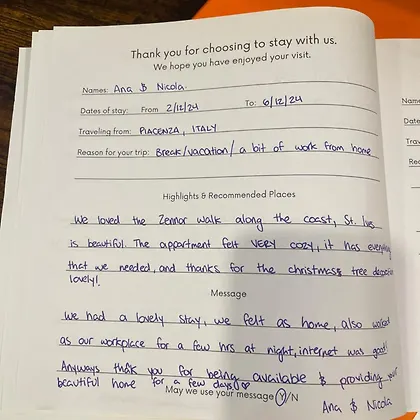 Thank you for choosing to stay with us.
We hope you have enjoyed your visit.
Names: Ana & Nicola.
Dates of stay: From 2/12/24 To: 6/12/24
Traveling from: PIACENZA, ITALY
Reason for your trip: Break/vacation/ a bit of work from home
Highlights & Recommended Places
We loved the Zennor walk along the coast, St. Ives
is beautiful. The appartment felt VERY cozy, it has everything
that we needed, and thanks for the christmass tree decoration
lovely!
Message
We had a lovely stay, we felt as home, also worked
as our workplace for a few hrs at night, internet was good!
Anyways thank you for being available & providing your
beautiful home for a few days!
May we use your message Y/N
Ana & Nicola
Na
Date
Trav
Rea